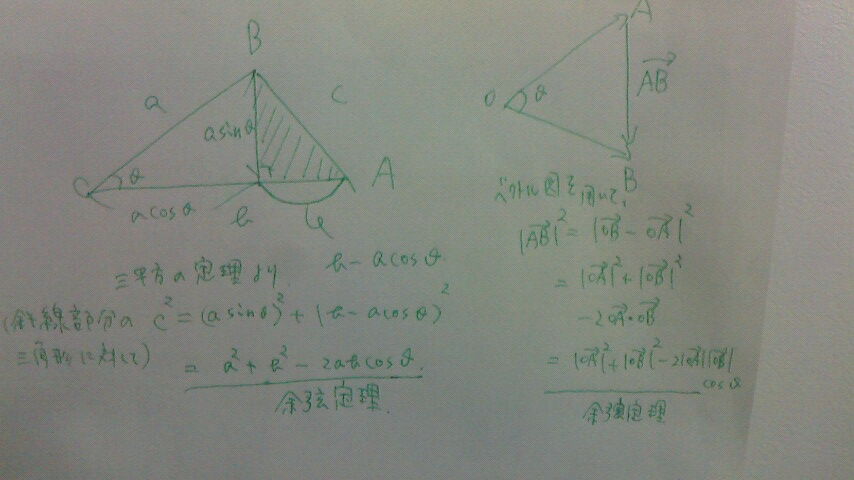 B
a
c
a sinθ
C
θ
A
a cosθ
b
b - a cosθ
三平方の定理より
(斜線部分の
三角形に対して)
c² = (a sinθ)² + (b - a cosθ)²
= a² + b² - 2ab cosθ.
余弦定理.
A
O
θ
AB→
B
ベクトル図を用いて、
|AB→|² = |OB→ - OA→|²
= |OA→|² + |OB→|²
- 2OA→・OB→
= |OA→|² + |OB→|² - 2|OA→||OB→|
cosθ
余弦定理